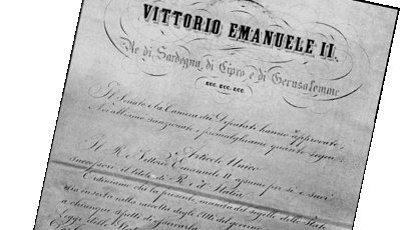 VITTORIO EMANUELE II
Re di Sardegna di Cipro e di Gerusalemme
ecc. ecc. ecc.
Il Senato e la Camera dei Deputati hanno approvato;
Noi abbiamo sanzionato e promulghiamo quanto segue:
Articolo Unico
Il Re Vittorio Emanuele II assume per sè e suoi
successori il titolo di Re d'Italia
Ordiniamo che la presente, munita del sigillo dello Stato
sia inserta nella raccolta degli Atti del governo
a chiunque spetti di osservarla
legge dello Stato